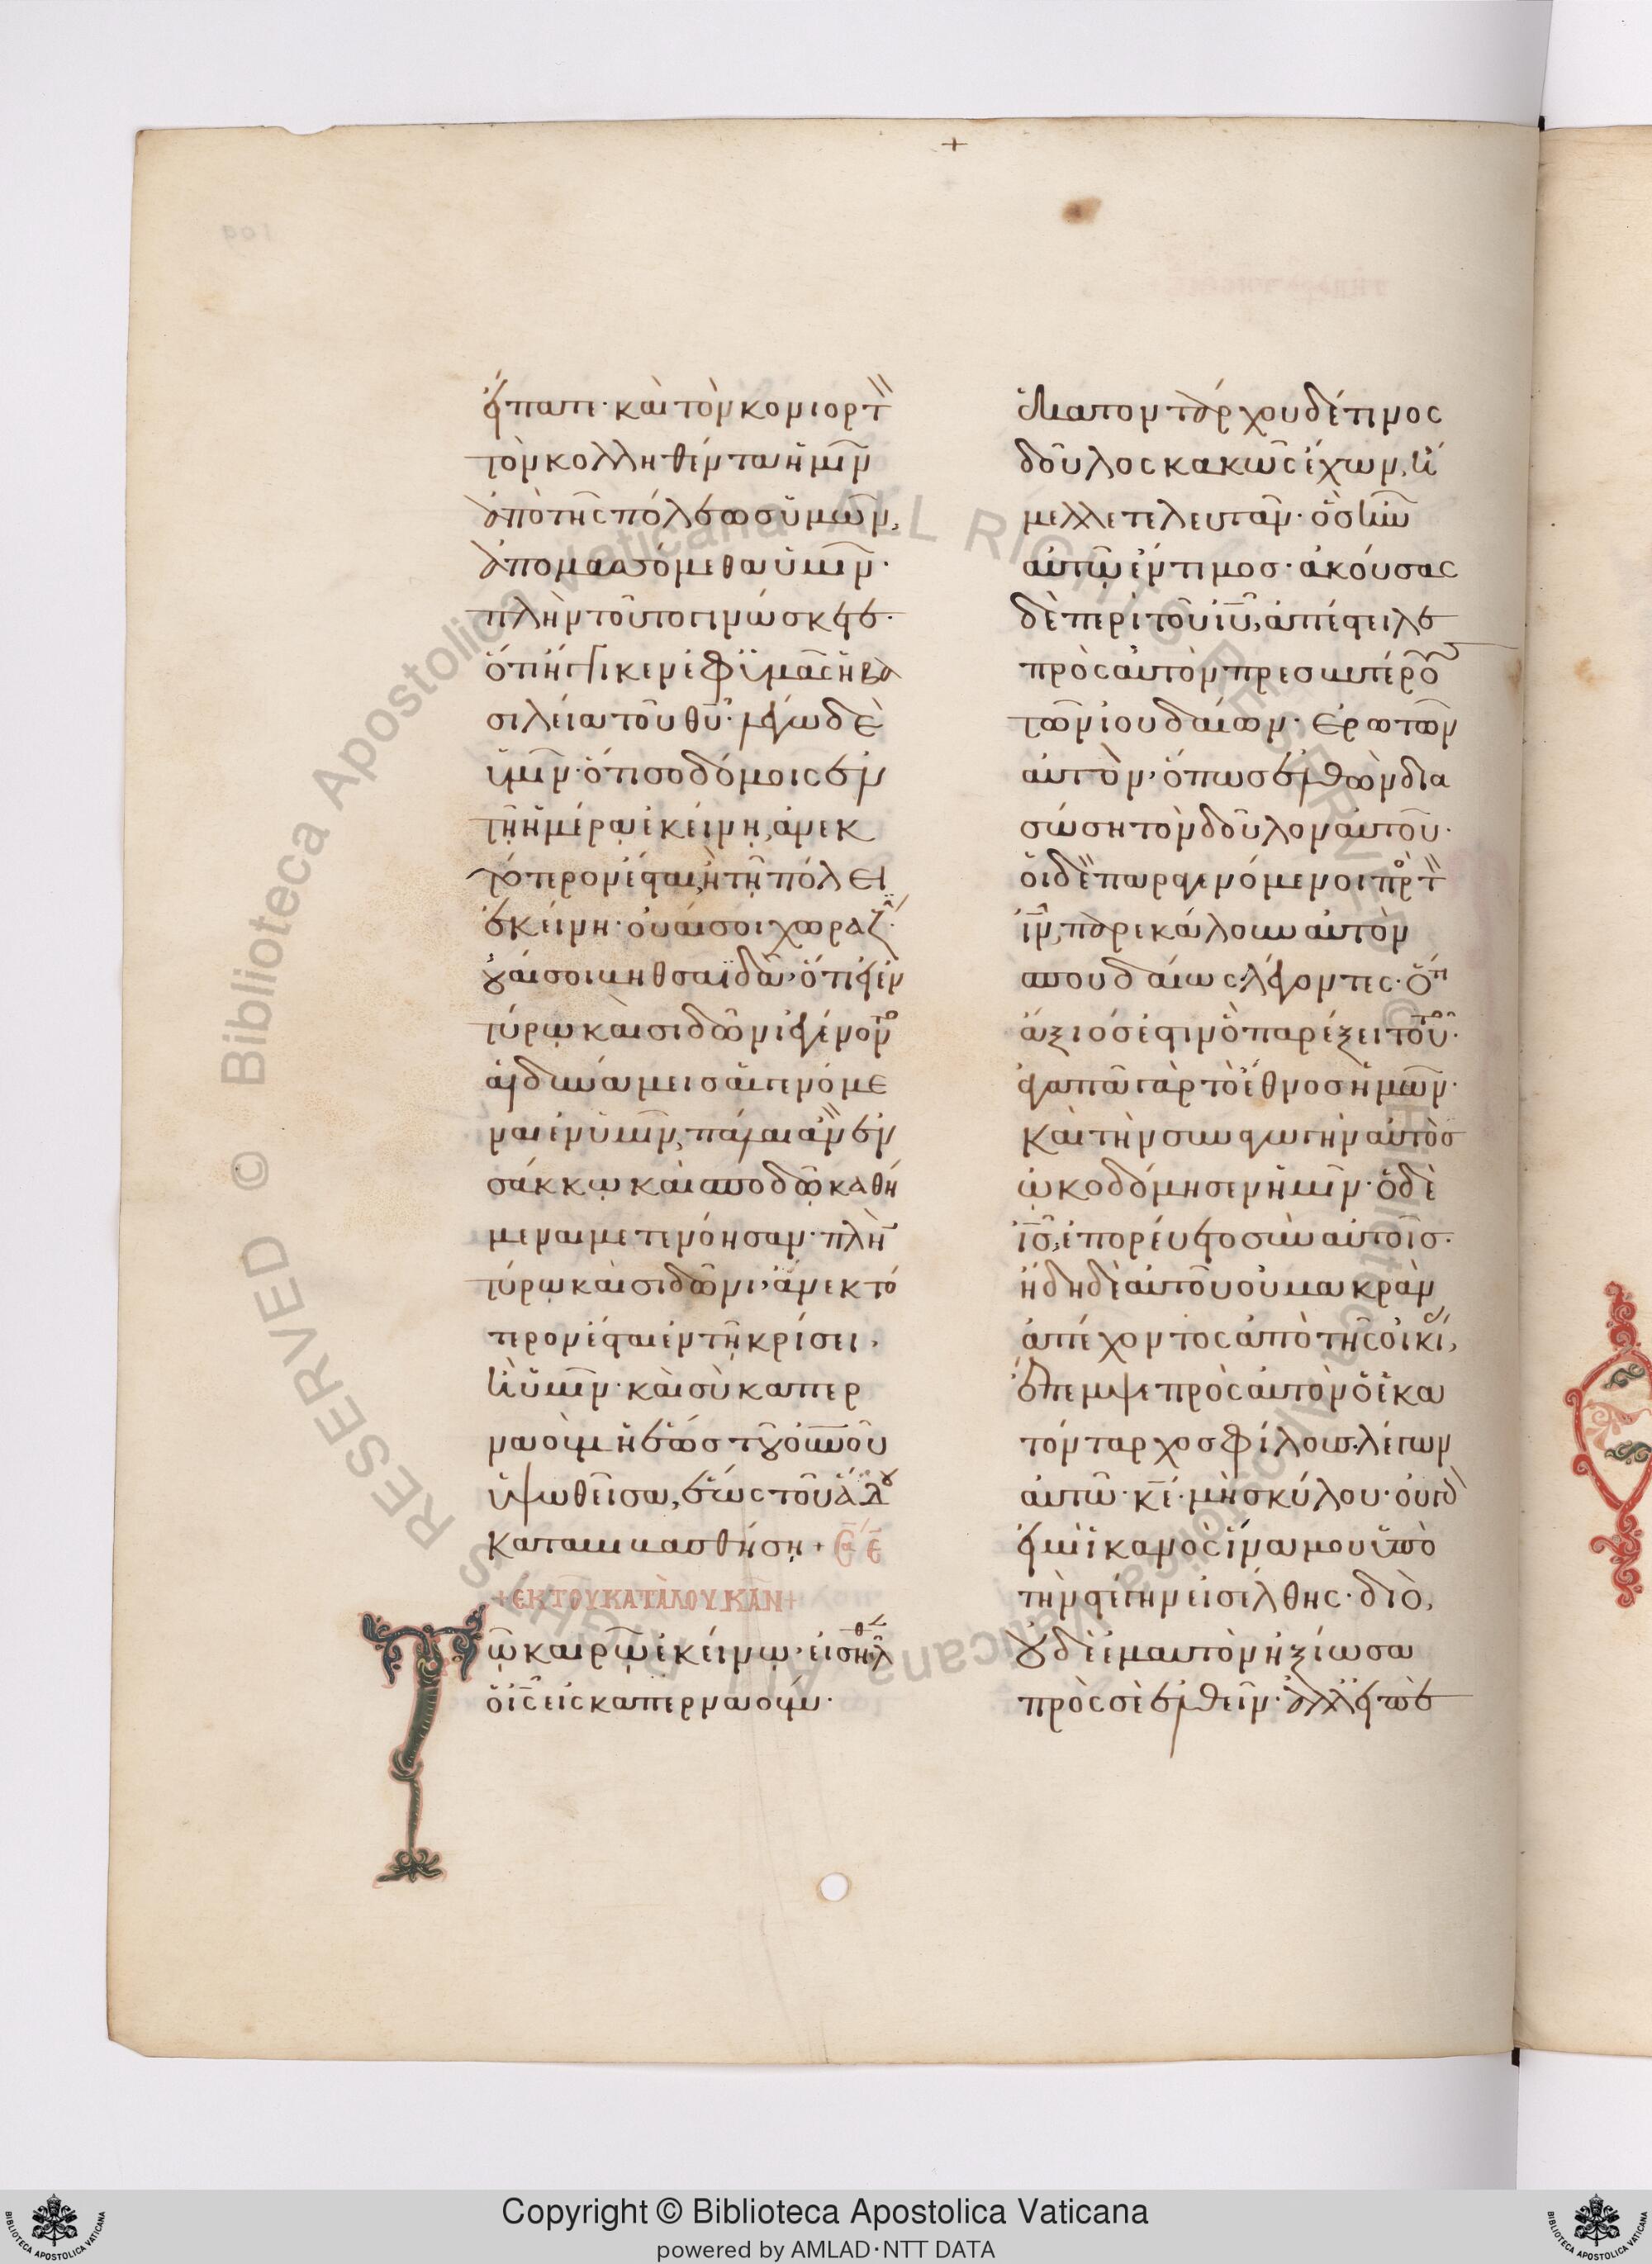 +
εἴπατε· καὶ τὸν κονιορτ̅
τὸν κολληθέντα ἡμῖν
ἀπὸ τῆς πόλεως ὑμῶν,
ἀπομασσόμεθα ὑμῖν·
πλὴν τοῦτο γινώσκετε·
ὅτι ἤγγικεν ἐφ ὑμᾶς ἡ βα
σιλεία τοῦ θ̅υ̅· λέγω δὲ
ὑμῖν· ὅτι σοδόμοις ἐν
τῇ ἡμέρᾳ ἐκείνῃ, ἀνεκ
τότερον ἔσται, ἢ τῇ πόλει
ἐκείνῃ· οὐαί σοι χωραζ·
οὐαί σοι βηθσαϊδά, ὅτι εἰ ἐν
τύρῳ καὶ σιδῶνι ἐγένον̅τ̅ο
αἱ δυνάμεις αἱ γενόμε
ναι ἐν ὑμῖν, πάλαι ἂν ἐν
σάκκῳ καὶ σποδῷ καθή
μεναι μετενόησαν· πλὴν
τύρῳ καὶ σιδῶνι, ἀνεκτό
τερον ἔσται ἐν τῇ κρίσει,
ἢ ὑμῖν· καὶ σὺ καπερ
ναοὺμ ἡ ἕως τοῦ ο̅υ̅ν̅ο̅υ̅
ὑψωθεῖσα, ἕως τοῦ ἅδου
καταβιβασθήσῃ +
+ ΕΚ ΤΟΥ ΚΑΤΑ ΛΟΥΚΑΝ +
Τῷ καιρῷ ἐκείνῳ· εἰσῆλθ
ὁ ι̅ς̅ εἰς καπερναούμ·
ἑκατοντάρχου δέ τινος
δοῦλος κακῶς ἔχων, ἤ
μελλε τελευτᾶν· ὃς ἦν
αὐτῷ ἔντιμος· ἀκούσας
δὲ περὶ τοῦ ι̅υ̅, ἀπέστειλε
πρὸς αὐτὸν πρεσβυτέρους
τῶν ἰουδαίων· ἐρωτῶν
αὐτὸν, ὅπως ἐλθὼν δια
σώσῃ τὸν δοῦλον αὐτοῦ·
οἱ δὲ παραγενόμενοι πρ τ̅
ι̅ν̅, παρεκάλουν αὐτὸν
σπουδαίως, λέγοντες· ὅτι
ἄξιός ἐστιν ᾧ παρέξει τοῦτο·
ἀγαπᾷ γὰρ τὸ ἔθνος ἡμῶν·
καὶ τὴν συναγωγὴν αὐτὸς
ᾠκοδόμησεν ἡμῖν· ὁ δὲ
ι̅ς̅, ἐπορεύετο σὺν αὐτοῖς·
ἤδη δὲ αὐτοῦ οὐ μακρὰν
ἀπέχοντος ἀπὸ τῆς οἰκί,
ἔπεμψε πρὸς αὐτὸν ὁ ἑκα
τόνταρχος φίλους, λέγων
αὐτῷ· κ̅ε̅· μὴ σκύλου· οὐ γὰρ
εἰμὶ ἱκανὸς ἵνα μου ὑπὸ
τὴν στέγην εἰσέλθῃς· διὸ,
οὐδὲ ἐμαυτὸν ἠξίωσα
πρὸς σὲ ἐλθεῖν· ἀλλ εἰπὲ
Copyright © Biblioteca Apostolica Vaticana
powered by AMLAD·NTT DATA